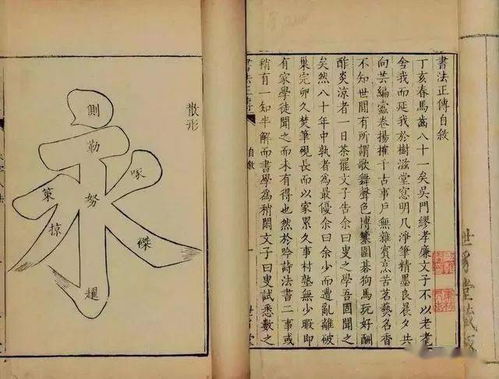 書法正傳自敘
丁亥春馬齒八十一矣吳門繆孝廉文子不以老耄
舍我而延我於樹滋堂窓明几淨筆精墨良晨夕共
向芸編靈卷揚搉于古事戶無雜賓烹苦茗藝名香
不知世間有所謂歌舞聲色博簺圍碁狗馬玩好酬
酢炎涼者一日茶罷文子告余曰叟之學吾固聞之
矣然八十年中孰者為最優余曰余少而遭亂離破
巢完卵久焚筆硯長而以家累久事村塾無少暇即
有家學徒聞之而未有得也然於吟詩法書二事或
稍有一知半解而書學為稍闊文子曰叟試悉數之
自敘
散形
側
勒
努
趯
策
掠
啄
磔